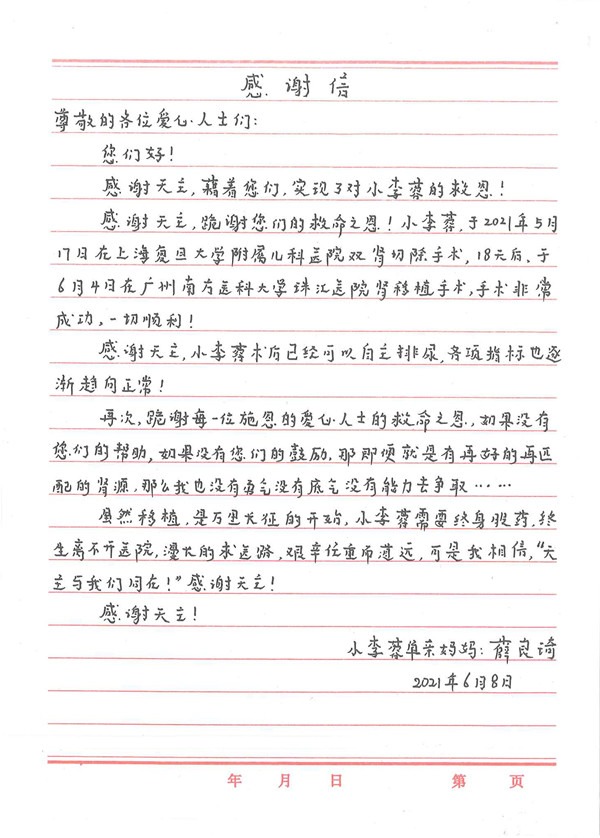 感谢信
尊敬的各位爱心人士们:
您们好!
感谢天主,藉着您们,实现了对小李蓉的救恩!
感谢天主,跪谢您们的救命之恩!小李蓉,于2021年5月
17日在上海复旦大学附属儿科医院双肾切除手术,18天后,于
6月4日在广州南方医科大学珠江医院肾移植手术,手术非常
成功,一切顺利!
感谢天主,小李蓉术后已经可以自主排尿,各项指标也逐
渐趋向正常!
再次,跪谢每一位施恩的爱心人士的救命之恩,如果没有
您们的帮助,如果没有您们的鼓励,那即便就是有再好的再匹
配的肾源,那么我也没有勇气没有底气没有能力去争取……
虽然移植,是万里长征的开始,小李蓉需要终身服药,终
生离不开医院,漫长的求医路,艰辛任重而道远,可是我相信,“天
主与我们同在!”感谢天主!
感谢天主!
小李蓉单亲妈妈:薛良琦
2021年6月8日
年 月 日 第 页